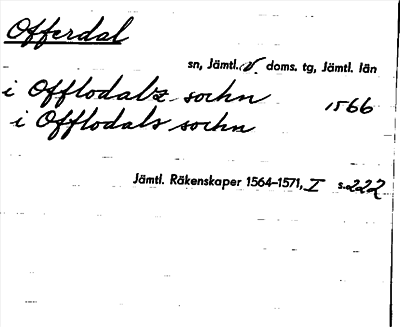 Offerdal
sn, Jämtl. v. doms. tg, Jämtl. län
i Offlodalz sochn 1566
i Offlodals sochn
Jämtl. Räkenskaper 1564–1571, I s. 222